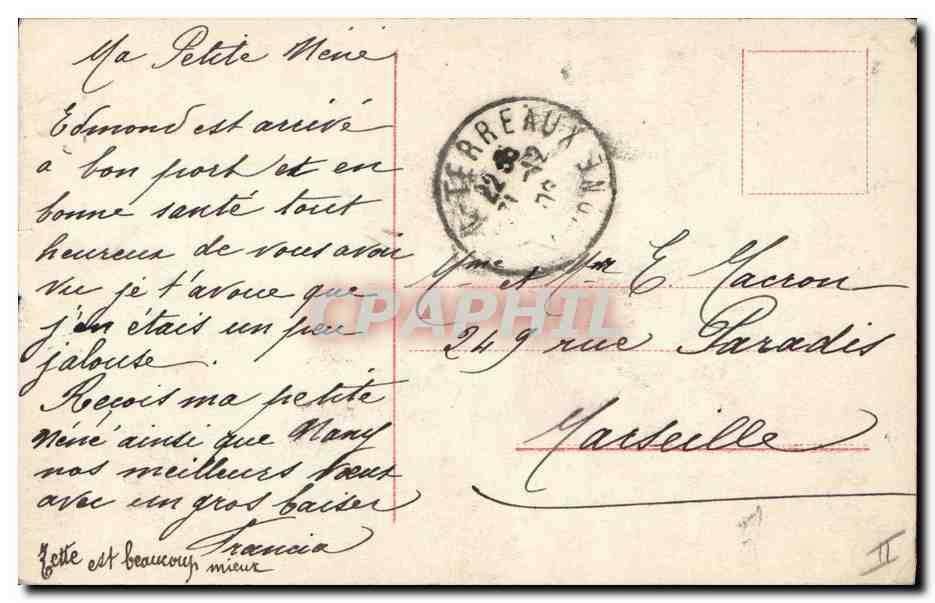 Ma Petite Néné
Edmond est arrivé
à bon port et en
bonne santé tout
heureux de vous avoir
vu je t'avoue que
j'en étais un peu
jalouse.
Reçois ma petite
Néné ainsi que Nany
nos meilleurs vœux
avec un gros baiser
Francia
Zette est beaucoup
mieux
TERREAUX
22
Mme et Mr E Macron
249 rue Paradis
Marseille
CPAPHIL
II